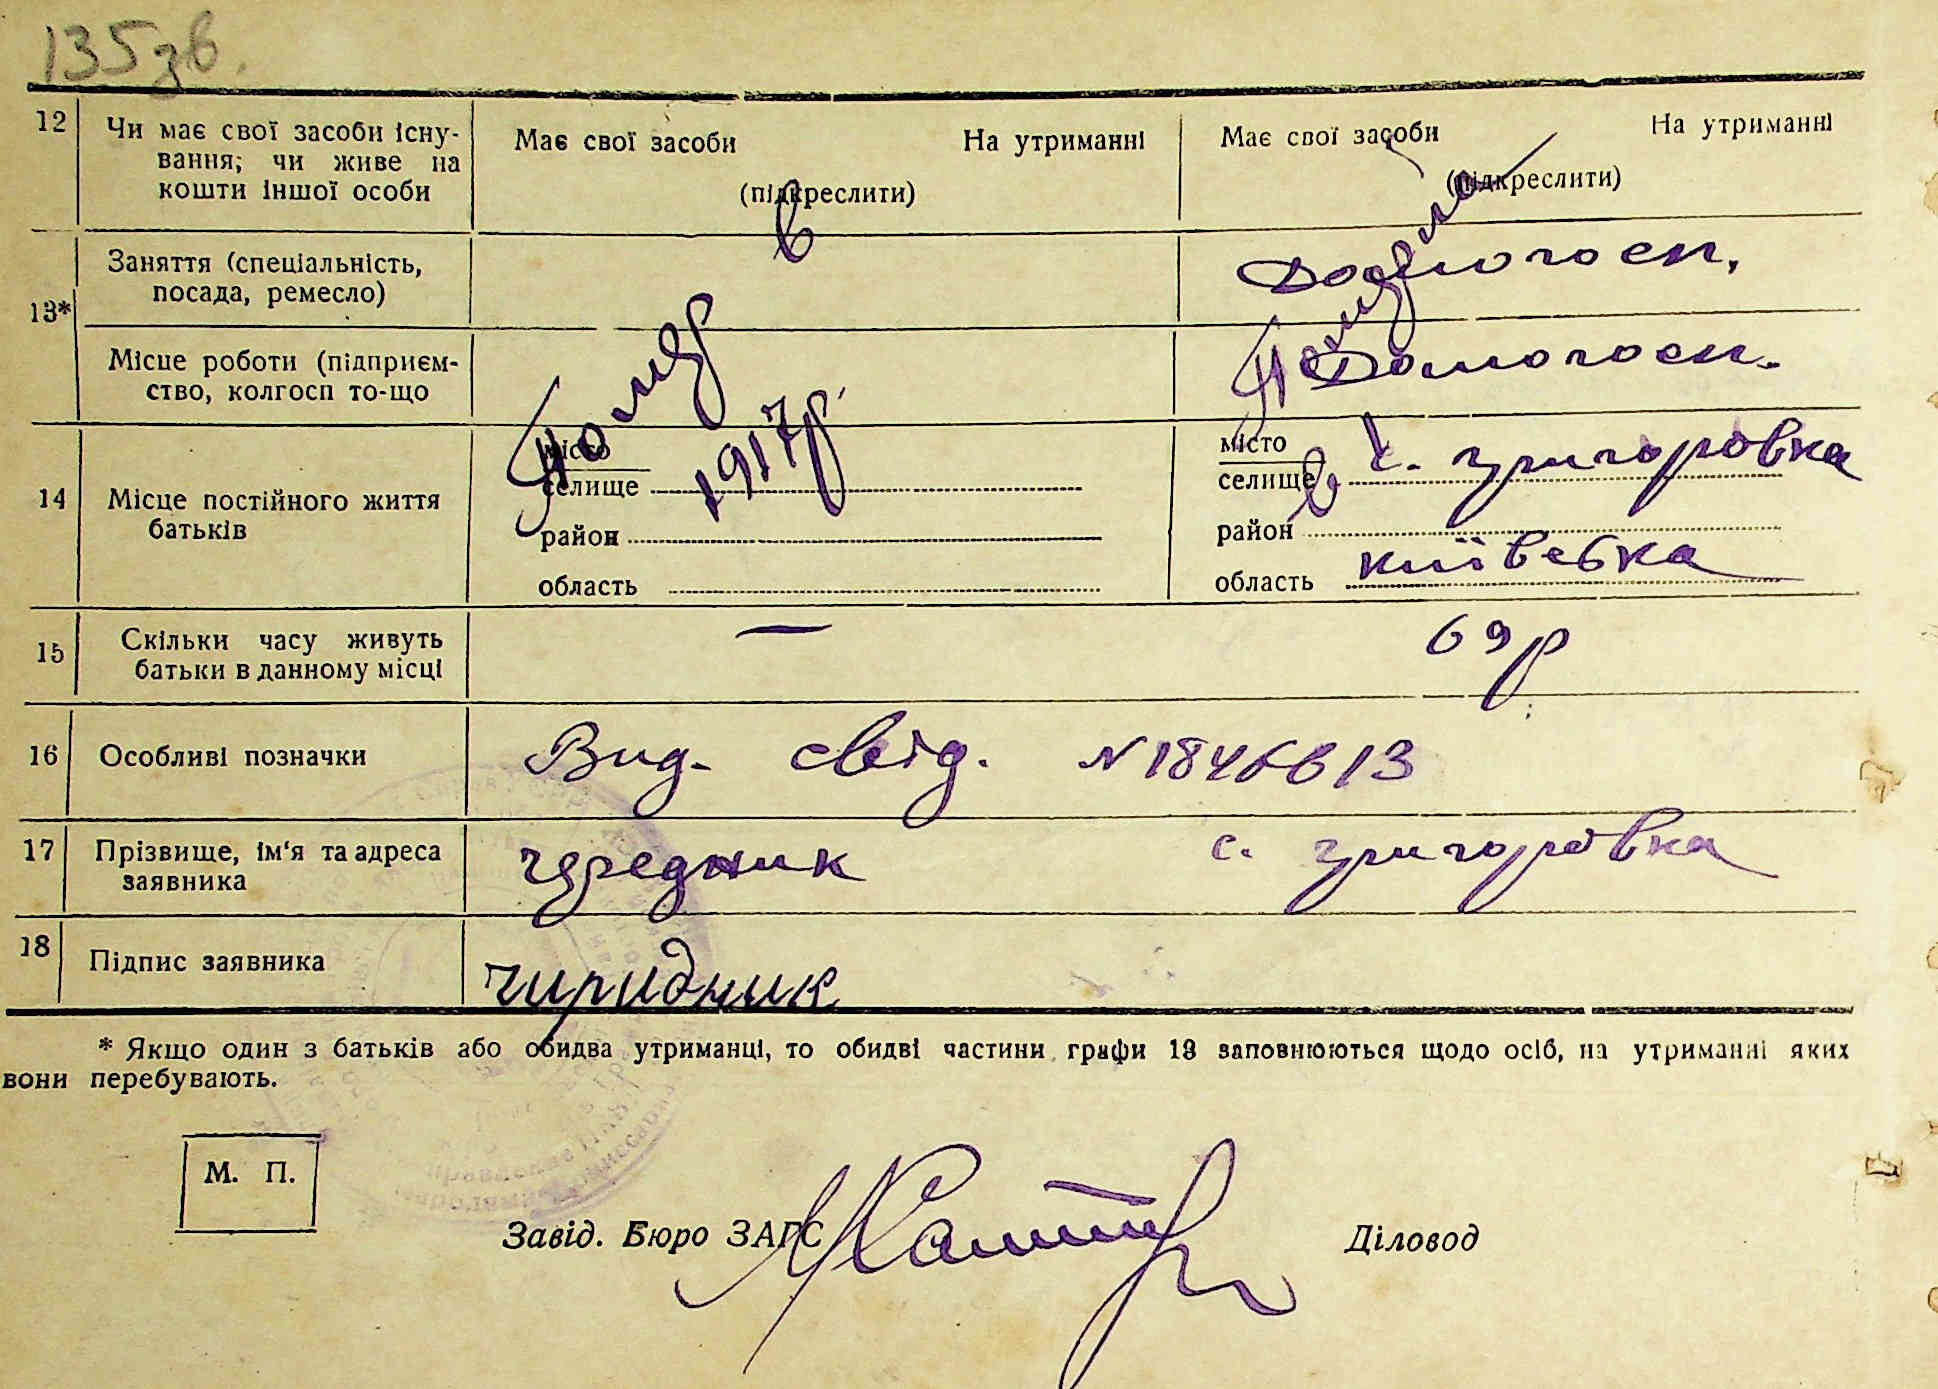 135зв.
12
Чи має свої засоби існу-
вання; чи живе на
кошти іншої особи
Має свої засоби На утриманні
(підкреслити)
Має свої засоби На утриманні
(підкреслити)
13*
Заняття (спеціальність,
посада, ремесло)
Домогосп.
Місце роботи (підприєм-
ство, колгосп то-що
Домогосп.
Помер
в
1917р.
Померла
в
14
Місце постійного життя
батьків
місто
селище
район
область
місто
селище с. Григоровка
район
область київська
15
Скільки часу живуть
батьки в данному місці
—
69р
16
Особливі позначки
Вид. свід. N1846613
17
Прізвище, ім'я та адреса
заявника
Чередник с. Григоровка
18
Підпис заявника
Чиридник
* Якщо один з батьків або обидва утриманці, то обидві частини графи 13 заповнюються щодо осіб, на утриманні яких
вони перебувають.
М. П.
Завід. Бюро ЗАГС
Діловод